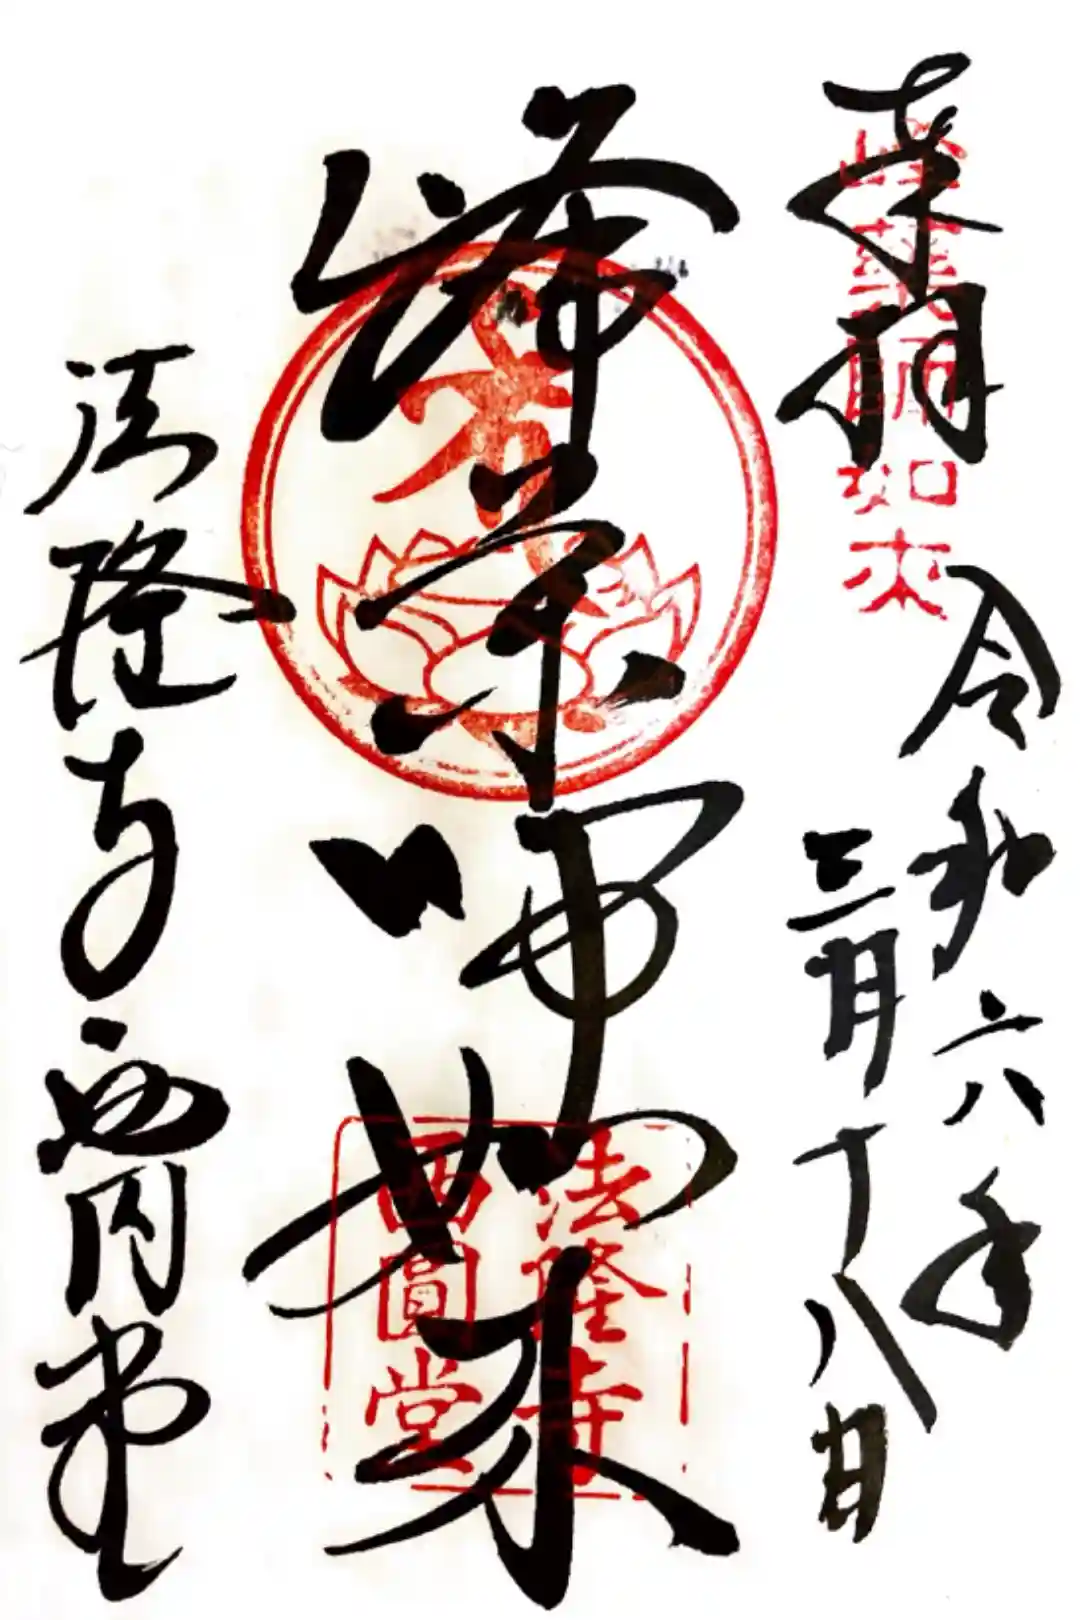 奉拝
峰薬師如来
令和六年
三月十八日
峰薬師如来
法隆寺
西圓堂
法隆寺西円堂